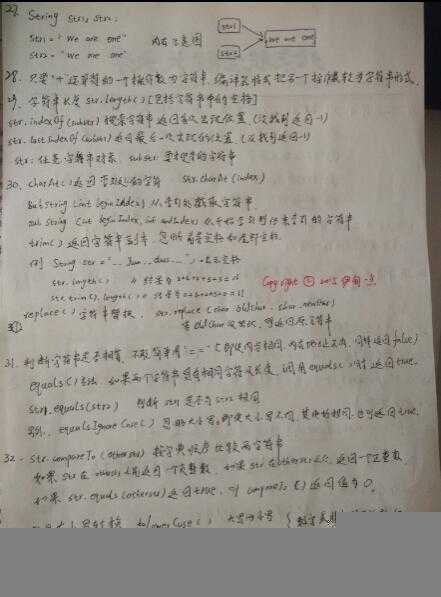 27. String str1, str2;
str1 = "we are one"
str2 = "we are one"
内存示意图
str1
str2
we are one
28. 只要"+"运算符的一个操作数为字符串，编译器就会把另一个操作数转为字符串形式。
29. 字符串长度 str.length() [包括字符串中的空格]
str.indexOf(substr) 搜索字符串返回首次出现位置 (没找到返回-1)
str.lastIndexOf(substr) 返回最后一次出现的位置 (没找到返回-1)
str: 任意字符串对象, substr 要搜索的字符串
30. charAt() 返回索引处的字符 str.charAt(index)
substring (int beginIndex) 从索引处截取字符串
substring (int beginIndex, int endIndex) 从开始索引到结束索引的字符串
trim() 返回字符串副本，忽略前导空格和尾部空格
例 String str =
str.length();
str.trim().length()
Copyright 2015 伊甸一点
replace() 字符串替换, str.replace(char oldChar, char newChar)
若 oldChar 没出现，则返回原字符串
31. 判断字符串是否相等，不能简单用 "==" (即使内容相同，内存地址不同，同样返回 false)
equals() 方法，如果两个字符串具有相同字符及长度，调用 equals() 时返回 true.
str1.equals(str2) 判断 str1 是否与 str2 相同
另外，equalsIgnoreCase() 忽略大小写，即使大小写不同，其他的相同，也可返回 true.
32. str.compareTo(otherstr) 按字典顺序比较两字符串
如果 str 在 otherstr 之前返回一个负整数，如果 str 在 otherstr 之后，返回一个正整数
如果 str.equals(otherstr) 返回 true，则 compareTo() 返回值为 0。
toLowerCase()